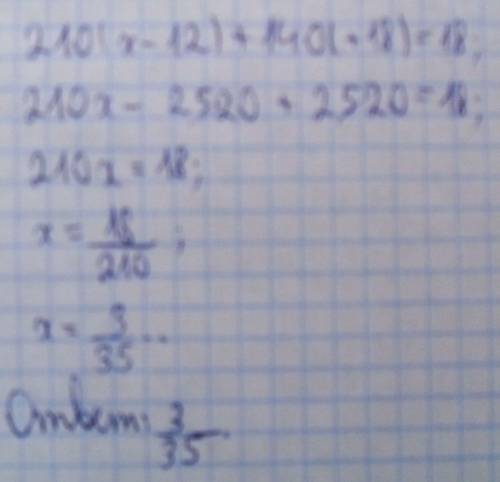 210(x-12)+140(+18)=18;
210x-2520+2520=18;
210x=18;
x=18/210;
x=3/35..
Ответ: 3/35